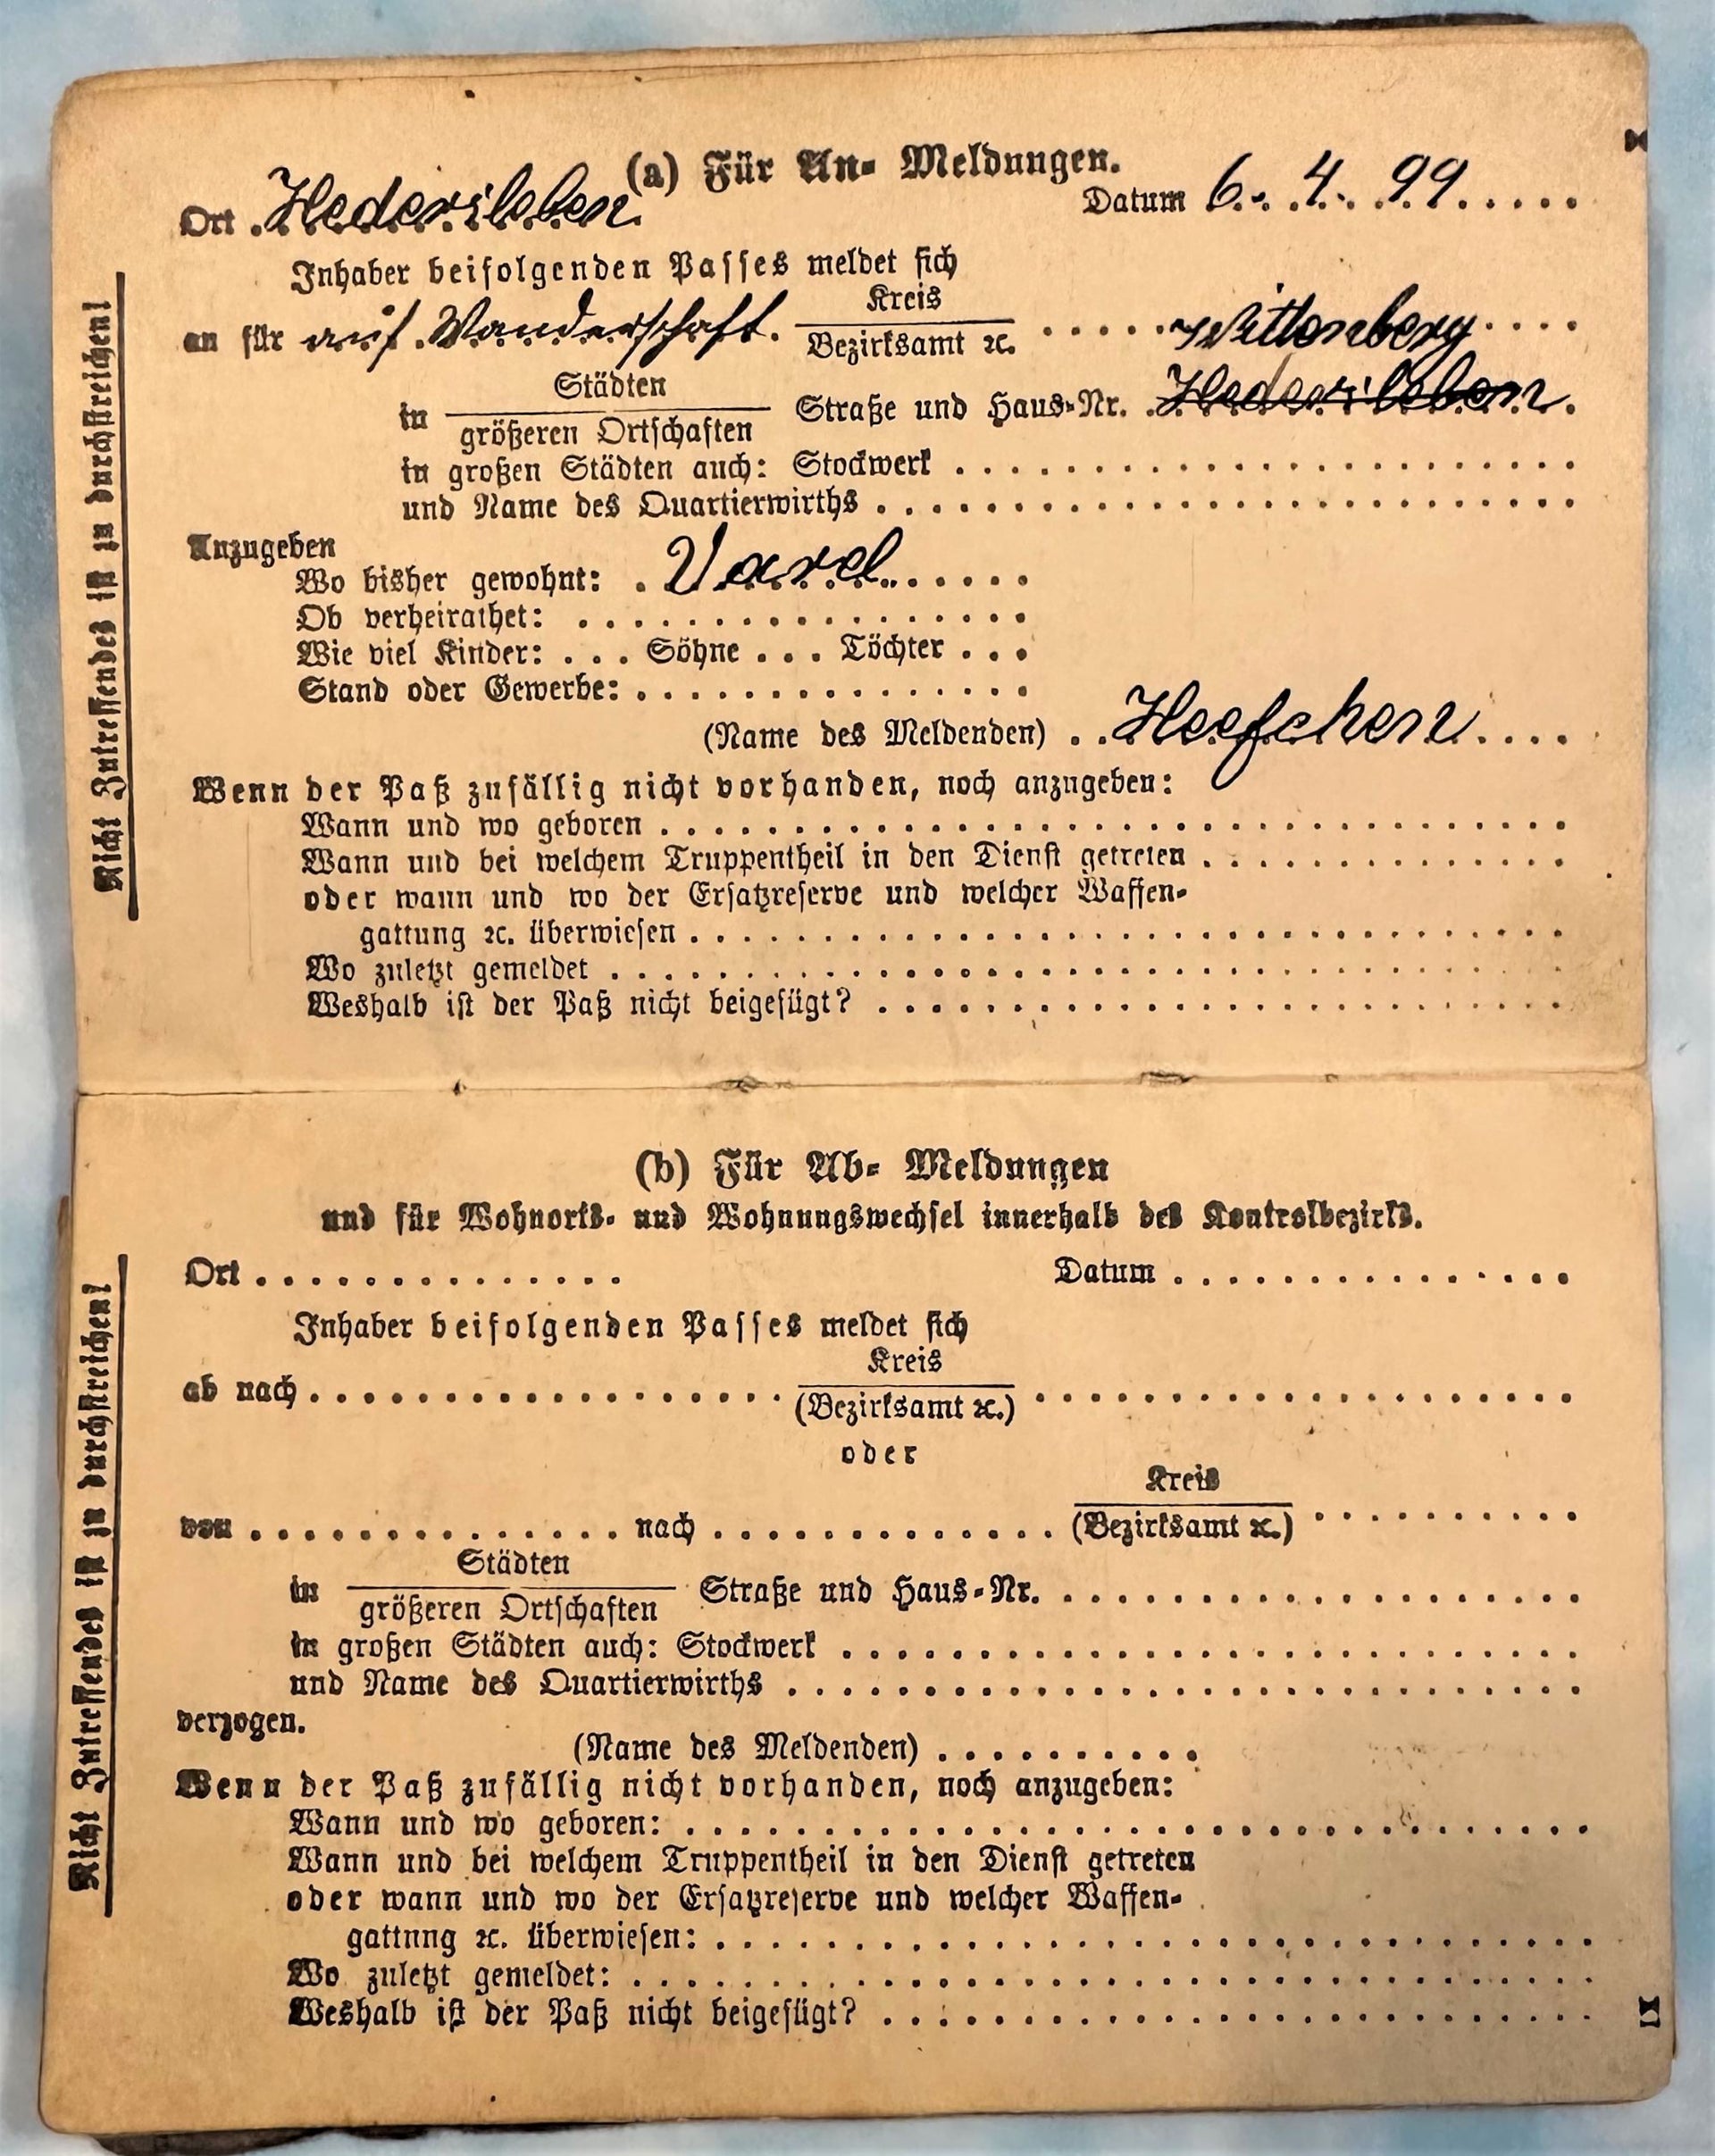 (a) Für An- Meldungen.
Ort Hedersleben Datum 6. 4. 99
Inhaber beifolgenden Passes meldet sich
an für auf Wanderschaft. Kreis / Bezirksamt ꝛc. Wittenberg
in Städten / größeren Ortschaften Straße und Haus-Nr. Hedersleben
in großen Städten auch: Stockwerk
und Name des Quartierwirths
Anzugeben
Wo bisher gewohnt: Varel
Ob verheirathet:
Wie viel Kinder: Söhne Töchter
Stand oder Gewerbe:
(Name des Meldenden)
Wenn der Paß zufällig nicht vorhanden, noch anzugeben:
Wann und wo geboren
Wann und bei welchem Truppentheil in den Dienst getreten
oder wann und wo der Ersatzreserve und welcher Waffen-
gattung ꝛc. überwiesen
Wo zuletzt gemeldet
Weshalb ist der Paß nicht beigefügt?
Nicht Zutreffendes ist zu durchstreichen!
(b) Für Ab- Meldungen
und für Wohnorts- und Wohnungswechsel innerhalb des Kontrolbezirks.
Ort Datum
Inhaber beifolgenden Passes meldet sich
ab nach Kreis / (Bezirksamt ꝛc.)
oder
von nach Kreis / (Bezirksamt ꝛc.)
in Städten / größeren Ortschaften Straße und Haus-Nr.
in großen Städten auch: Stockwerk
und Name des Quartierwirths
verzogen.
(Name des Meldenden)
Wenn der Paß zufällig nicht vorhanden, noch anzugeben:
Wann und wo geboren:
Wann und bei welchem Truppentheil in den Dienst getreten
oder wann und wo der Ersatzreserve und welcher Waffen-
gattung ꝛc. überwiesen:
Wo zuletzt gemeldet:
Weshalb ist der Paß nicht beigefügt?
Nicht Zutreffendes ist zu durchstreichen!